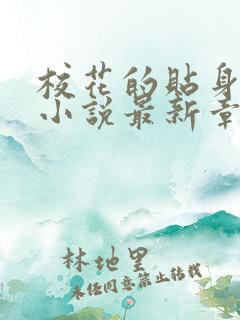 校花的贴身
小说最新章
林地里
未经同意禁止转载